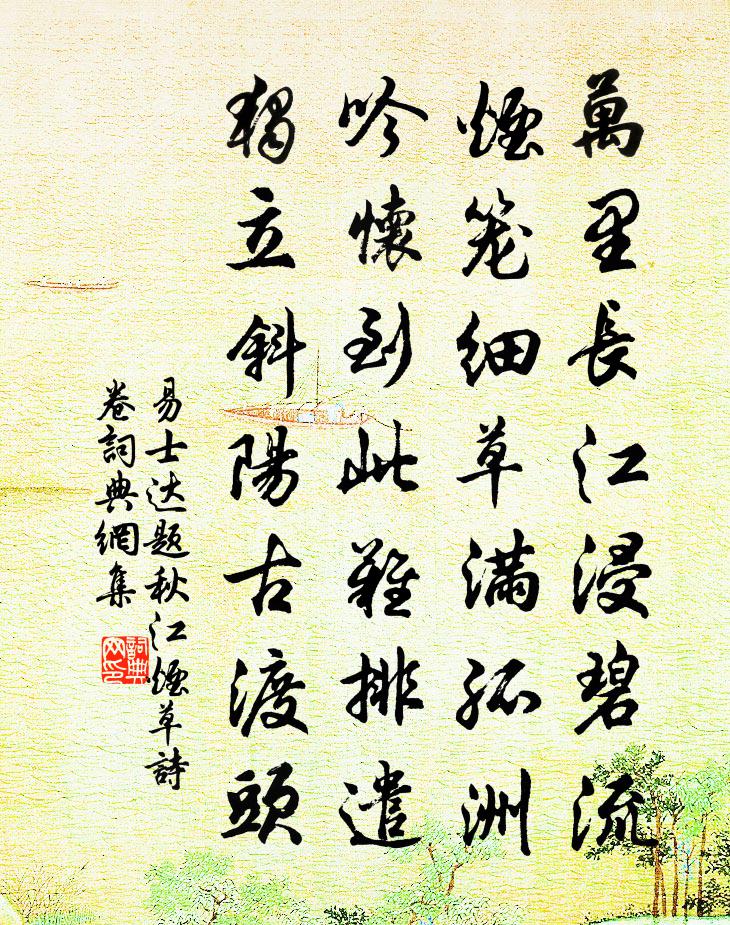 萬里長江浸碧流
煙笼细草滿孤洲
吟懷到此難排遣
獨立斜陽古渡頭
易士达题秋江煙草詩
卷詞典網集
詞典
网印